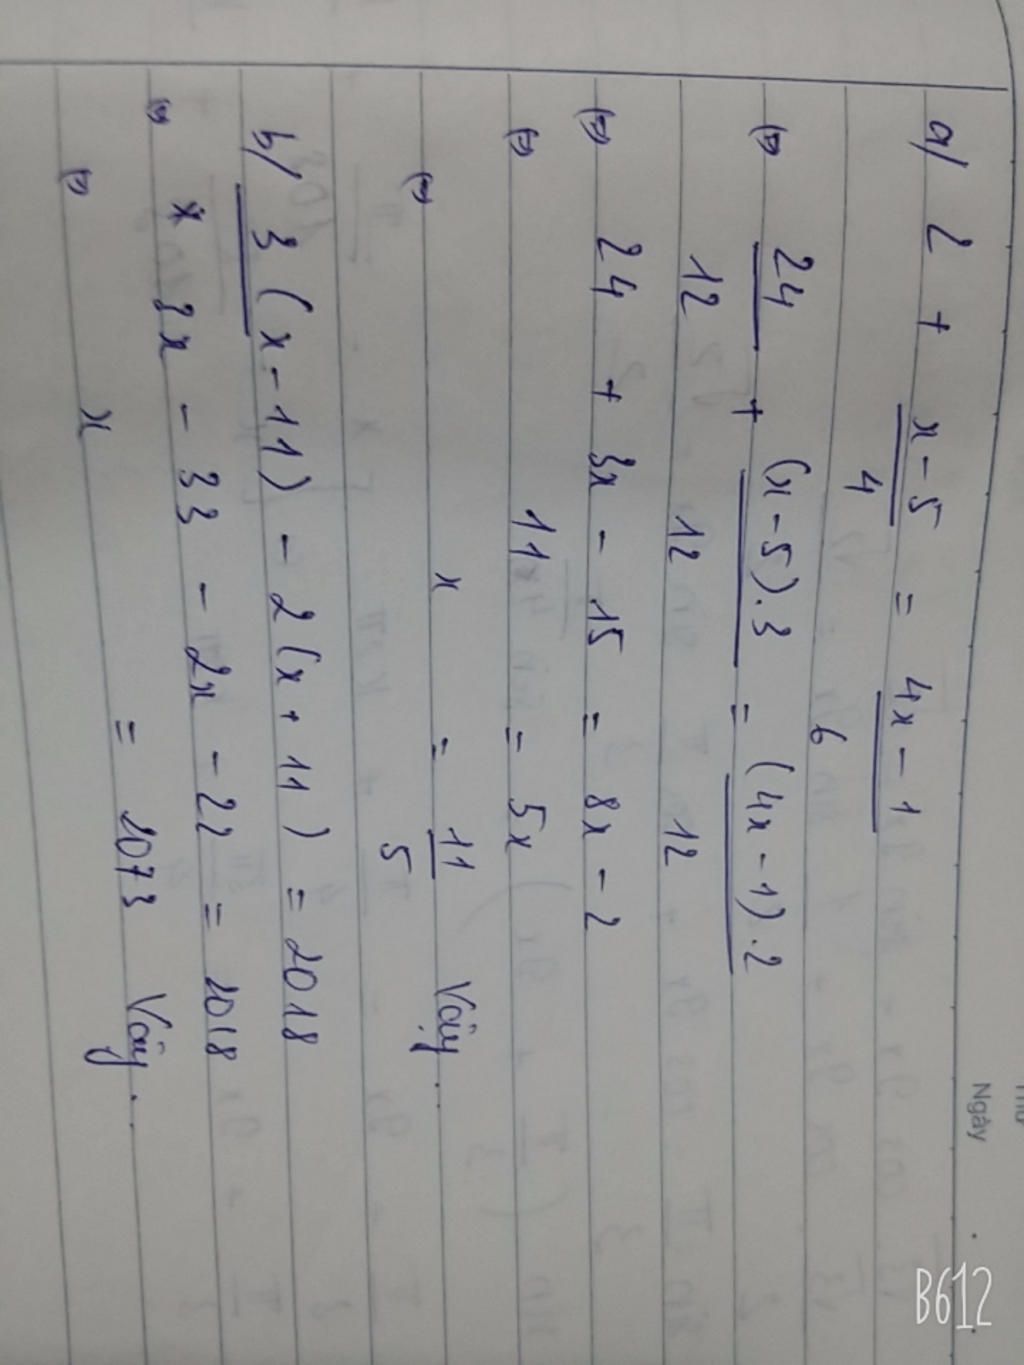 Ngày
a/ 2 + x-5 = 4x-1
4 6
(=) 24 + (x-5).3 = (4x-1).2
12 12 12
(=) 24 + 3x - 15 = 8x - 2
(=) 11 = 5x
(=) x = 11 Vậy...
5
b/ 3(x-11) - 2(x+11) = 2018
(=) 3x - 33 - 2x - 22 = 2018
(=) x = 2073 Vậy...
B612